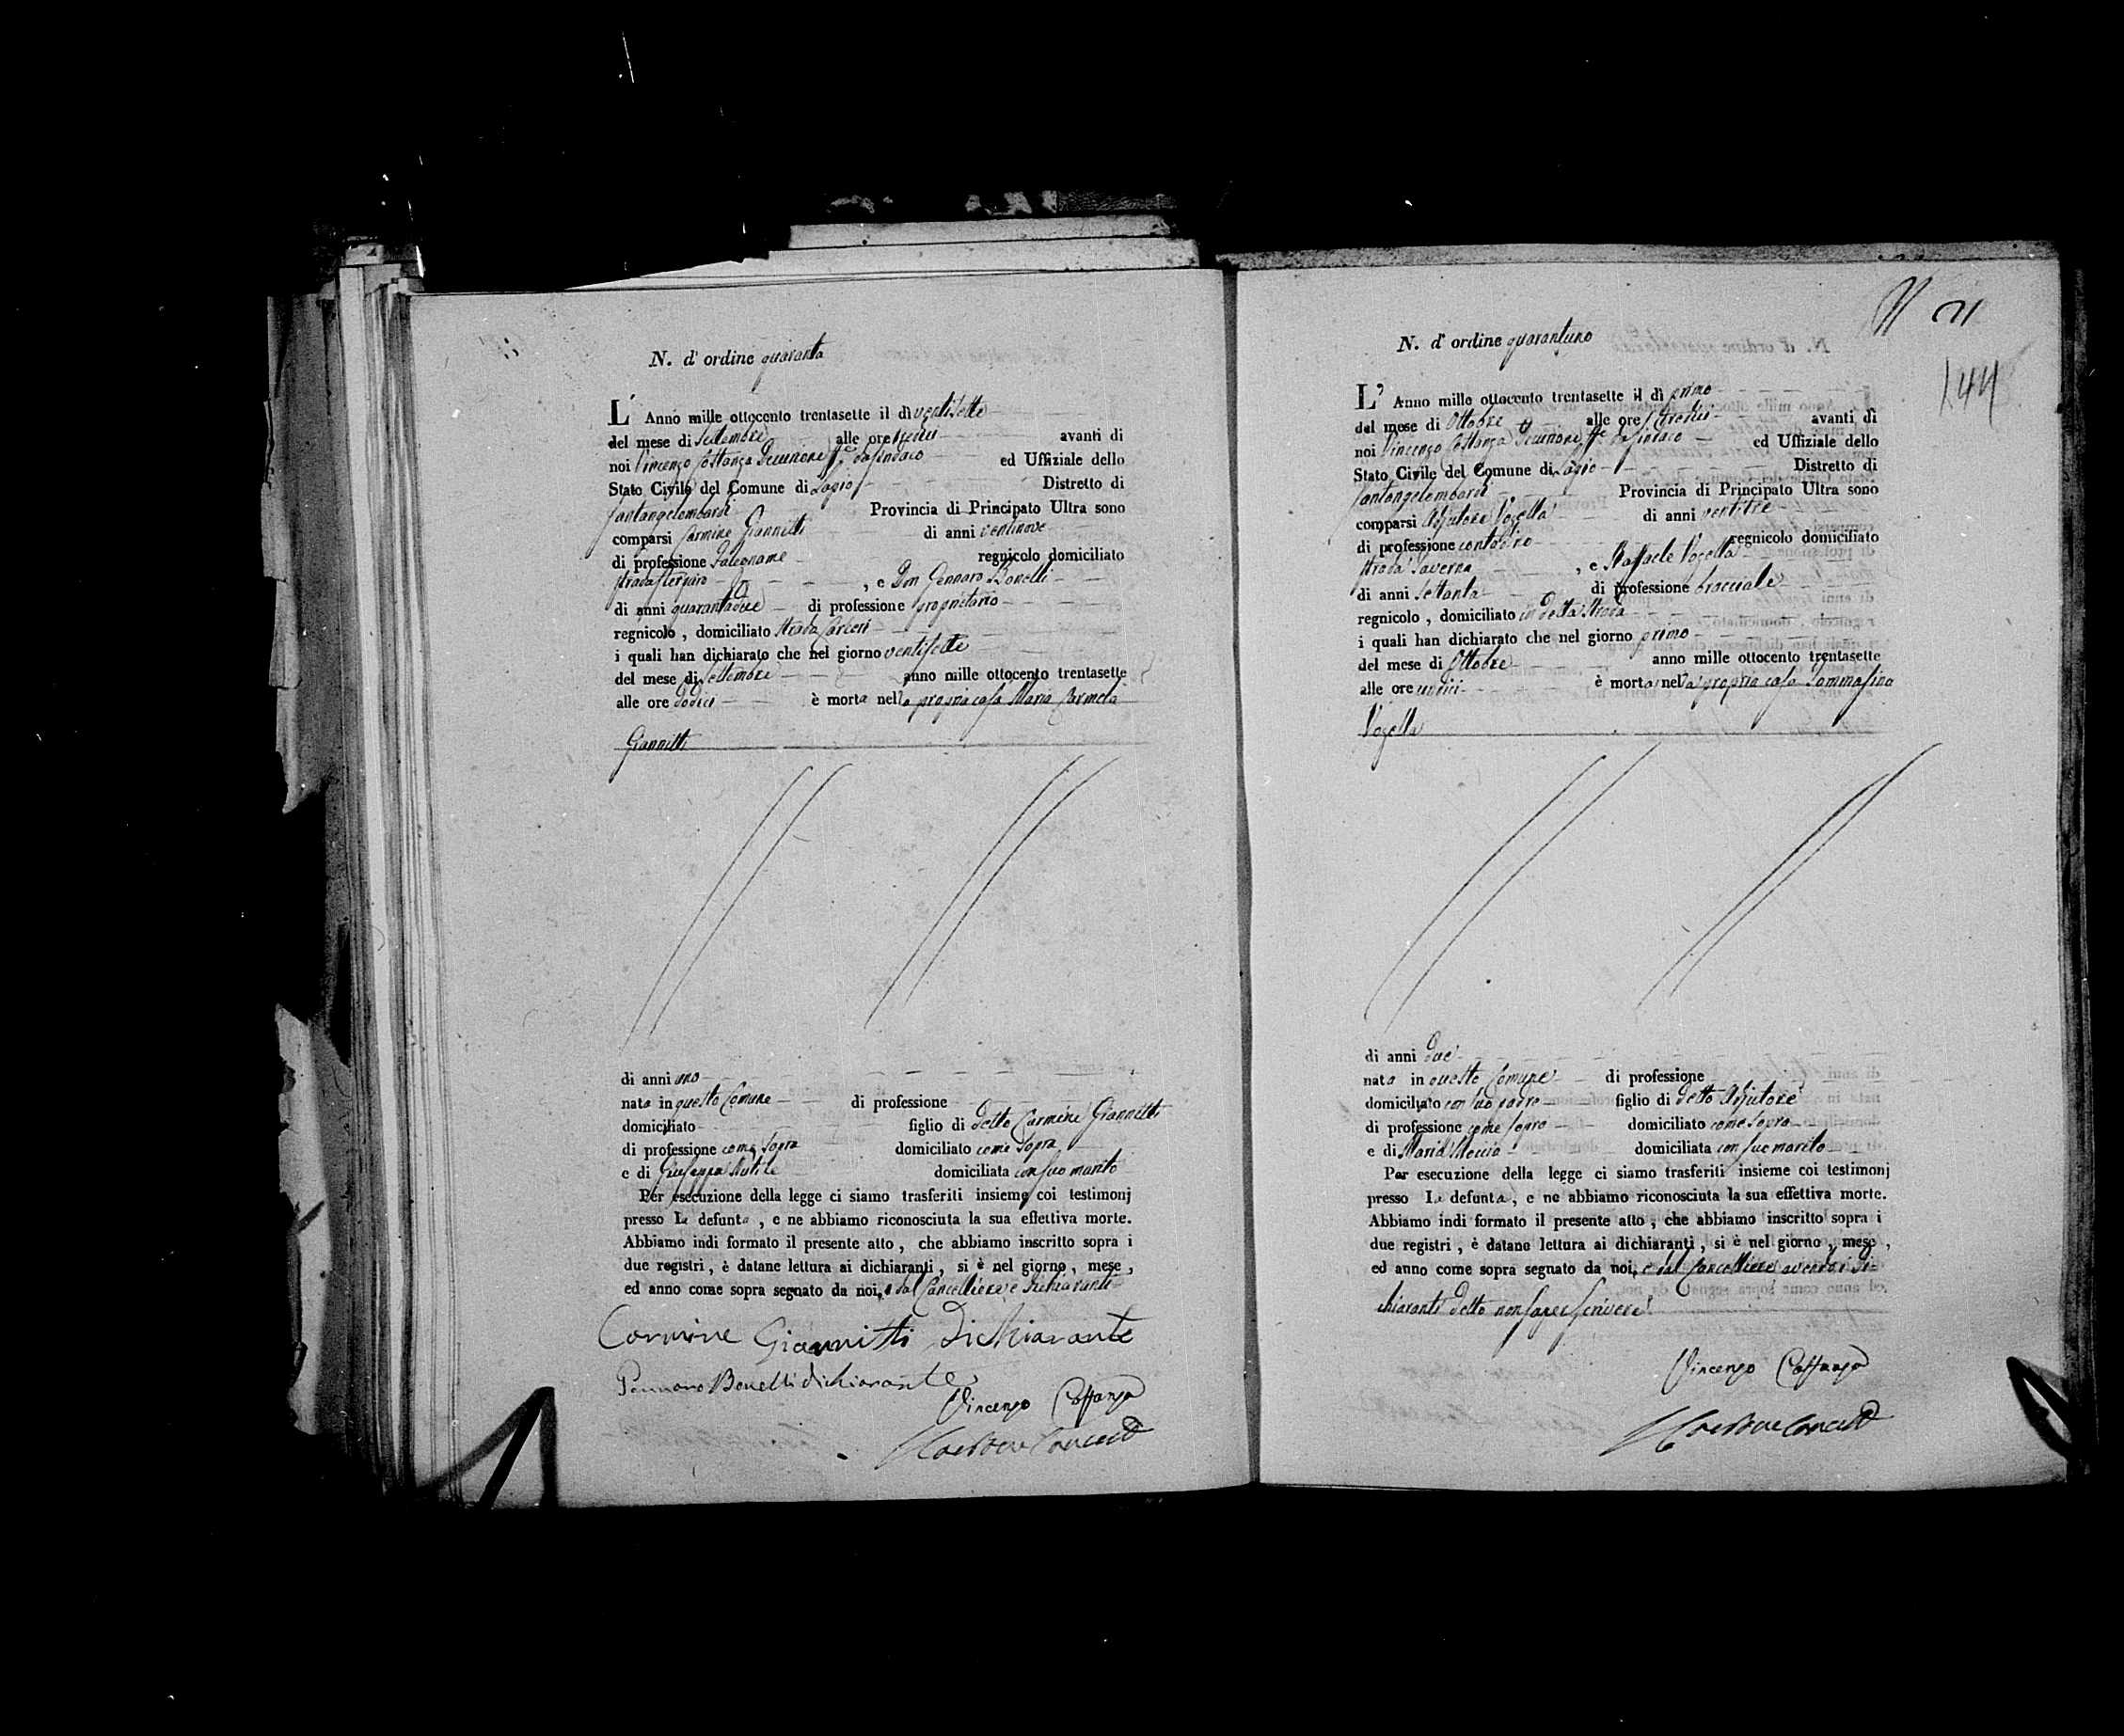 N. d' ordine quaranta
L' Anno mille ottocento trentasette il dì ventisette
del mese di Settembre alle ore tredici avanti di
noi Vincenzo Costanza Decurione ff.e da Sindaco ed Uffiziale dello
Stato Civile del Comune di Lapio Distretto di
Santangelombardi Provincia di Principato Ultra sono
comparsi Carmine Giannitti di anni ventinove
di professione Falegname regnicolo domiciliato
strada , e Don Gennaro Bonelli
di anni quarantadue di professione proprietario
regnicolo , domiciliato strada Carceri
i quali han dichiarato che nel giorno ventisette
del mese di Settembre anno mille ottocento trentasette
alle ore dodici è morta nella propria casa Maria Carmela
Giannitti
di anni uno
nata in questo Comune di professione
domiciliato figlio di detto Carmine Giannitti
di professione come sopra domiciliato come sopra
e di Giuseppa domiciliata con suo marito
Per esecuzione della legge ci siamo trasferiti insieme coi testimonj
presso La defunta , e ne abbiamo riconosciuta la sua effettiva morte.
Abbiamo indi formato il presente atto , che abbiamo inscritto sopra i
due registri , è datane lettura ai dichiaranti , si è nel giorno , mese ,
ed anno come sopra segnato da noi, dal Cancelliere e Dichiaranti
Carmine Giannitti Dichiarante
Gennaro Bonelli dichiarante
Vincenzo Costanza
N. d' ordine quarantuno
144
L' Anno mille ottocento trentasette il dì primo
del mese di Ottobre alle ore avanti di
noi Vincenzo Costanza Decurione ff.e da Sindaco ed Uffiziale dello
Stato Civile del Comune di Lapio Distretto di
Santangelombardi Provincia di Principato Ultra sono
comparsi Adjutore Vozella di anni ventitre
di professione contadino regnicolo domiciliato
strada Taverna , e Raffaele Vozella
di anni settanta di professione bracciale
regnicolo , domiciliato in detta strada
i quali han dichiarato che nel giorno primo
del mese di Ottobre anno mille ottocento trentasette
alle ore undici è morta nella propria casa Tommasina
Vozella
di anni due
nata in questo Comune di professione
domiciliato con suo padre figlio di detto Adjutore
di professione come sopra domiciliato come sopra
e di Maria domiciliata con suo marito
Per esecuzione della legge ci siamo trasferiti insieme coi testimonj
presso La defunta , e ne abbiamo riconosciuta la sua effettiva morte.
Abbiamo indi formato il presente atto , che abbiamo inscritto sopra i
due registri , è datane lettura ai dichiaranti , si è nel giorno , mese ,
ed anno come sopra segnato da noi, e dal Cancelliere avendo i Di-
chiaranti detto non saper scrivere
Vincenzo Costanza